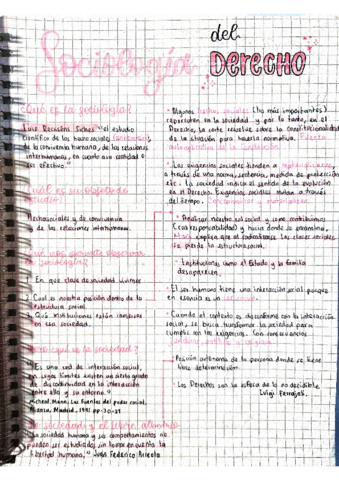 Sociología del DERECHO
¿Qué es la sociología?
Luis Recaséns Siches "el estudio
científico de los hechos sociales,
de la convivencia humana, de las relaciones
interhumanas, en cuanto a su realidad o
ser efectivo."
¿Cuál es su objeto de
estudio?
Hechos sociales y de convivencia
y de las relaciones interhumanas.
¿Qué nos permite observar
la sociología?
En que clase de sociedad vivimos
2. Cual es nuestra posición dentro de la
estructura social
Qué instituciones están inmersas
en esa sociedad.
¿Por qué es la sociedad?
Es una red de interacción social
en cuyos límites existe un cierto grado
de discontinuidad en la interacción
entre ella y su entorno."
Michael Mann, Las fuentes del poder social,
Alianza, Madrid, 1991 pp. 30-31
La sociedad y el libre albedrío
"La sociedad humana y sus comportamientos no
pueden ser estudiados sin tener en cuenta la
libertad humana," Juan Federico Arriola
Algunos hechos sociales (los más importantes)
repercuten en la sociedad y por lo tanto, en el
Derecho, la corte resolvió sobre la constitucionalidad
de la situación para hacerla normativa.
Las exigencias sociales tienden a
a través de una norma, sentencia, medida de protección
etc. La sociedad indica el sentido de la evolución
en el Derecho. Exigencias sociales mutan a través
del tiempo.
Analizar nuestro rol social y como contribuimos
(corresponsabilidad) y hacia donde se encamina.
Marx explica que al radicalizarse las clases sociales
se pierde la estructura social.
Instituciones como el Estado y la familia
desaparecen.
El ser humano tiene una interacción social porque
en esencia es un ser social.
Cuando el contexto es disconforme con la interacción
social, se busca transformar la sociedad para
cumplir con las exigencias. Son consecuencias
Posición autónoma de la persona donde se tiene
libre determinación.
Los Derechos son la esfera de lo no decidible.
Luigi Ferrajoli.